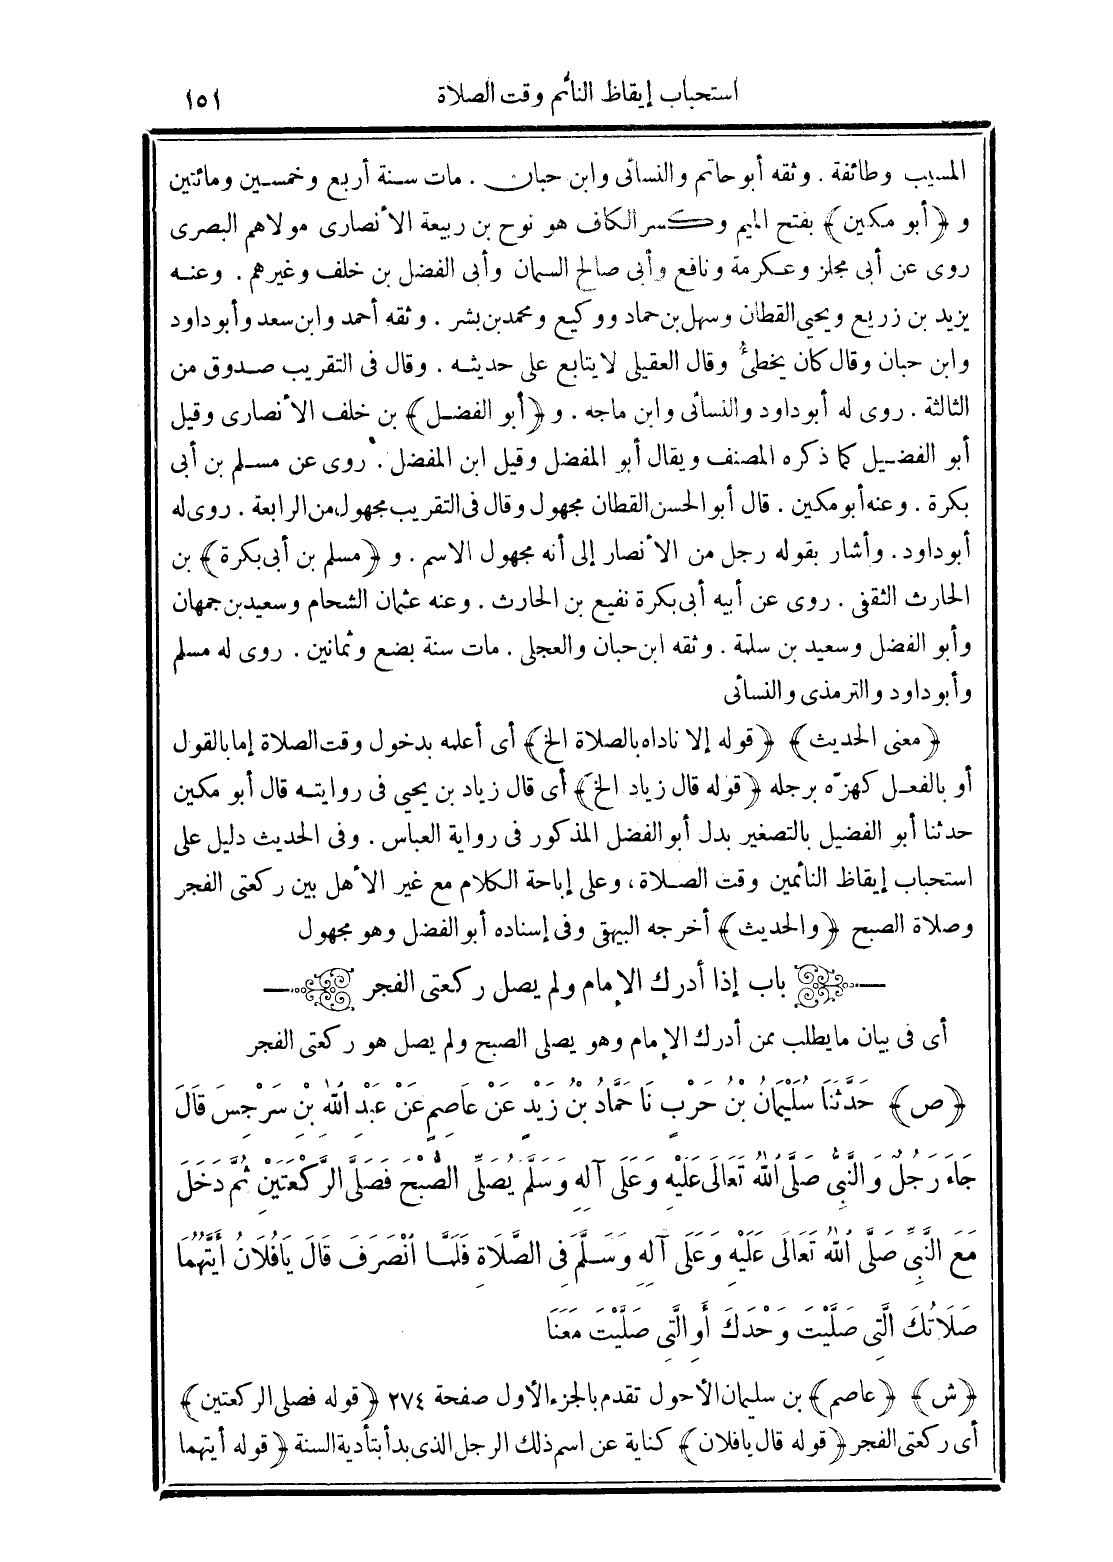 استحباب إيقاظ النائم وقت الصلاة
١٥١
المسيب وطائفة . وثقه أبو حاتم والنسائى وابن حبان . مات سنة أربع وخمسين ومائتين
و ﴿أبو مكين﴾ بفتح الميم وكسر الكاف هو نوح بن ربيعة الأنصارى مولاهم البصرى
روى عن أبى مجلز وعكرمة ونافع وأبى صالح السمان وأبى الفضل بن خلف وغيرهم . وعنه
يزيد بن زريع ويحيى القطان وسهل بن حماد ووكيع ومحمد بن بشر . وثقه أحمد وابن سعد وأبو داود
وابن حبان وقال كان يخطئ وقال العقيلى لا يتابع على حديثه . وقال فى التقريب صدوق من
الثالثة . روى له أبو داود والنسائى وابن ماجه . و ﴿أبو الفضل﴾ بن خلف الأنصارى وقيل
أبو الفضيل كما ذكره المصنف ويقال أبو المفضل وقيل ابن المفضل . روى عن مسلم بن أبى
بكرة . وعنه أبو مكين . قال أبو الحسن القطان مجهول وقال فى التقريب مجهول من الرابعة . روى له
أبو داود . وأشار بقوله رجل من الأنصار إلى أنه مجهول الاسم . و ﴿مسلم بن أبى بكرة﴾ بن
الحارث الثقفى . روى عن أبيه أبى بكرة نفيع بن الحارث . وعنه عثمان الشحام وسعيد بن جمهان
وأبو الفضل وسعيد بن سلمة . وثقه ابن حبان والعجلى . مات سنة بضع وثمانين . روى له مسلم
وأبو داود والترمذى والنسائى
﴿معنى الحديث﴾ ﴿قوله إلا ناداه بالصلاة الخ﴾ أى أعلمه بدخول وقت الصلاة إما بالقول
أو بالفعل كهزّه برجله ﴿قوله قال زياد الخ﴾ أى قال زياد بن يحيى فى روايته قال أبو مكين
حدثنا أبو الفضيل بالتصغير بدل أبو الفضل المذكور فى رواية العباس . وفى الحديث دليل على
استحباب إيقاظ النائمين وقت الصلاة ، وعلى إباحة الكلام مع غير الأهل بين ركعتى الفجر
وصلاة الصبح ﴿والحديث﴾ أخرجه البيهقى وفى إسناده أبو الفضل وهو مجهول
باب إذا أدرك الإمام ولم يصل ركعتى الفجر
أى فى بيان ما يطلب ممن أدرك الإمام وهو يصلى الصبح ولم يصل هو ركعتى الفجر
﴿ص﴾ حَدَّثَنَا سُلَيْمَانُ بْنُ حَرْبٍ نَا حَمَّادُ بْنُ زَيْدٍ عَنْ عَاصِمٍ عَنْ عَبْدِ اللهِ بْنِ سَرْجِسَ قَالَ
جَاءَ رَجُلٌ وَالنَّبِىُّ صَلَّى اللهُ تَعَالَى عَلَيْهِ وَعَلَى آلِهِ وَسَلَّمَ يُصَلِّى الصُّبْحَ فَصَلَّى الرَّكْعَتَيْنِ ثُمَّ دَخَلَ
مَعَ النَّبِىِّ صَلَّى اللهُ تَعَالَى عَلَيْهِ وَعَلَى آلِهِ وَسَلَّمَ فِى الصَّلَاةِ فَلَمَّا انْصَرَفَ قَالَ يَا فُلَانُ أَيَّتُهُمَا
صَلَاتُكَ الَّتِى صَلَّيْتَ وَحْدَكَ أَوِ الَّتِى صَلَّيْتَ مَعَنَا
﴿ش﴾ ﴿عاصم﴾ بن سليمان الأحول تقدم بالجزء الأول صفحة ٢٧٤ ﴿قوله فصلى الركعتين﴾
أى ركعتى الفجر ﴿قوله قال يا فلان﴾ كناية عن اسم ذلك الرجل الذى بدأ بتأدية السنة ﴿قوله أيتهما